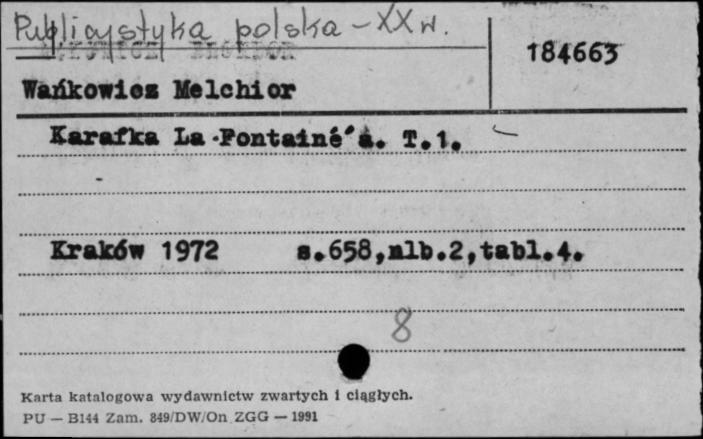 Publicystyka polska - XX w.
184663
Wańkowicz Melchior
Karafka La Fontainé'a. T.1.
Kraków 1972 s.658,nlb.2,tabl.4.
8
Karta katalogowa wydawnictw zwartych i ciągłych.
PU — B144 Zam. 849/DW/On ZGG — 1991